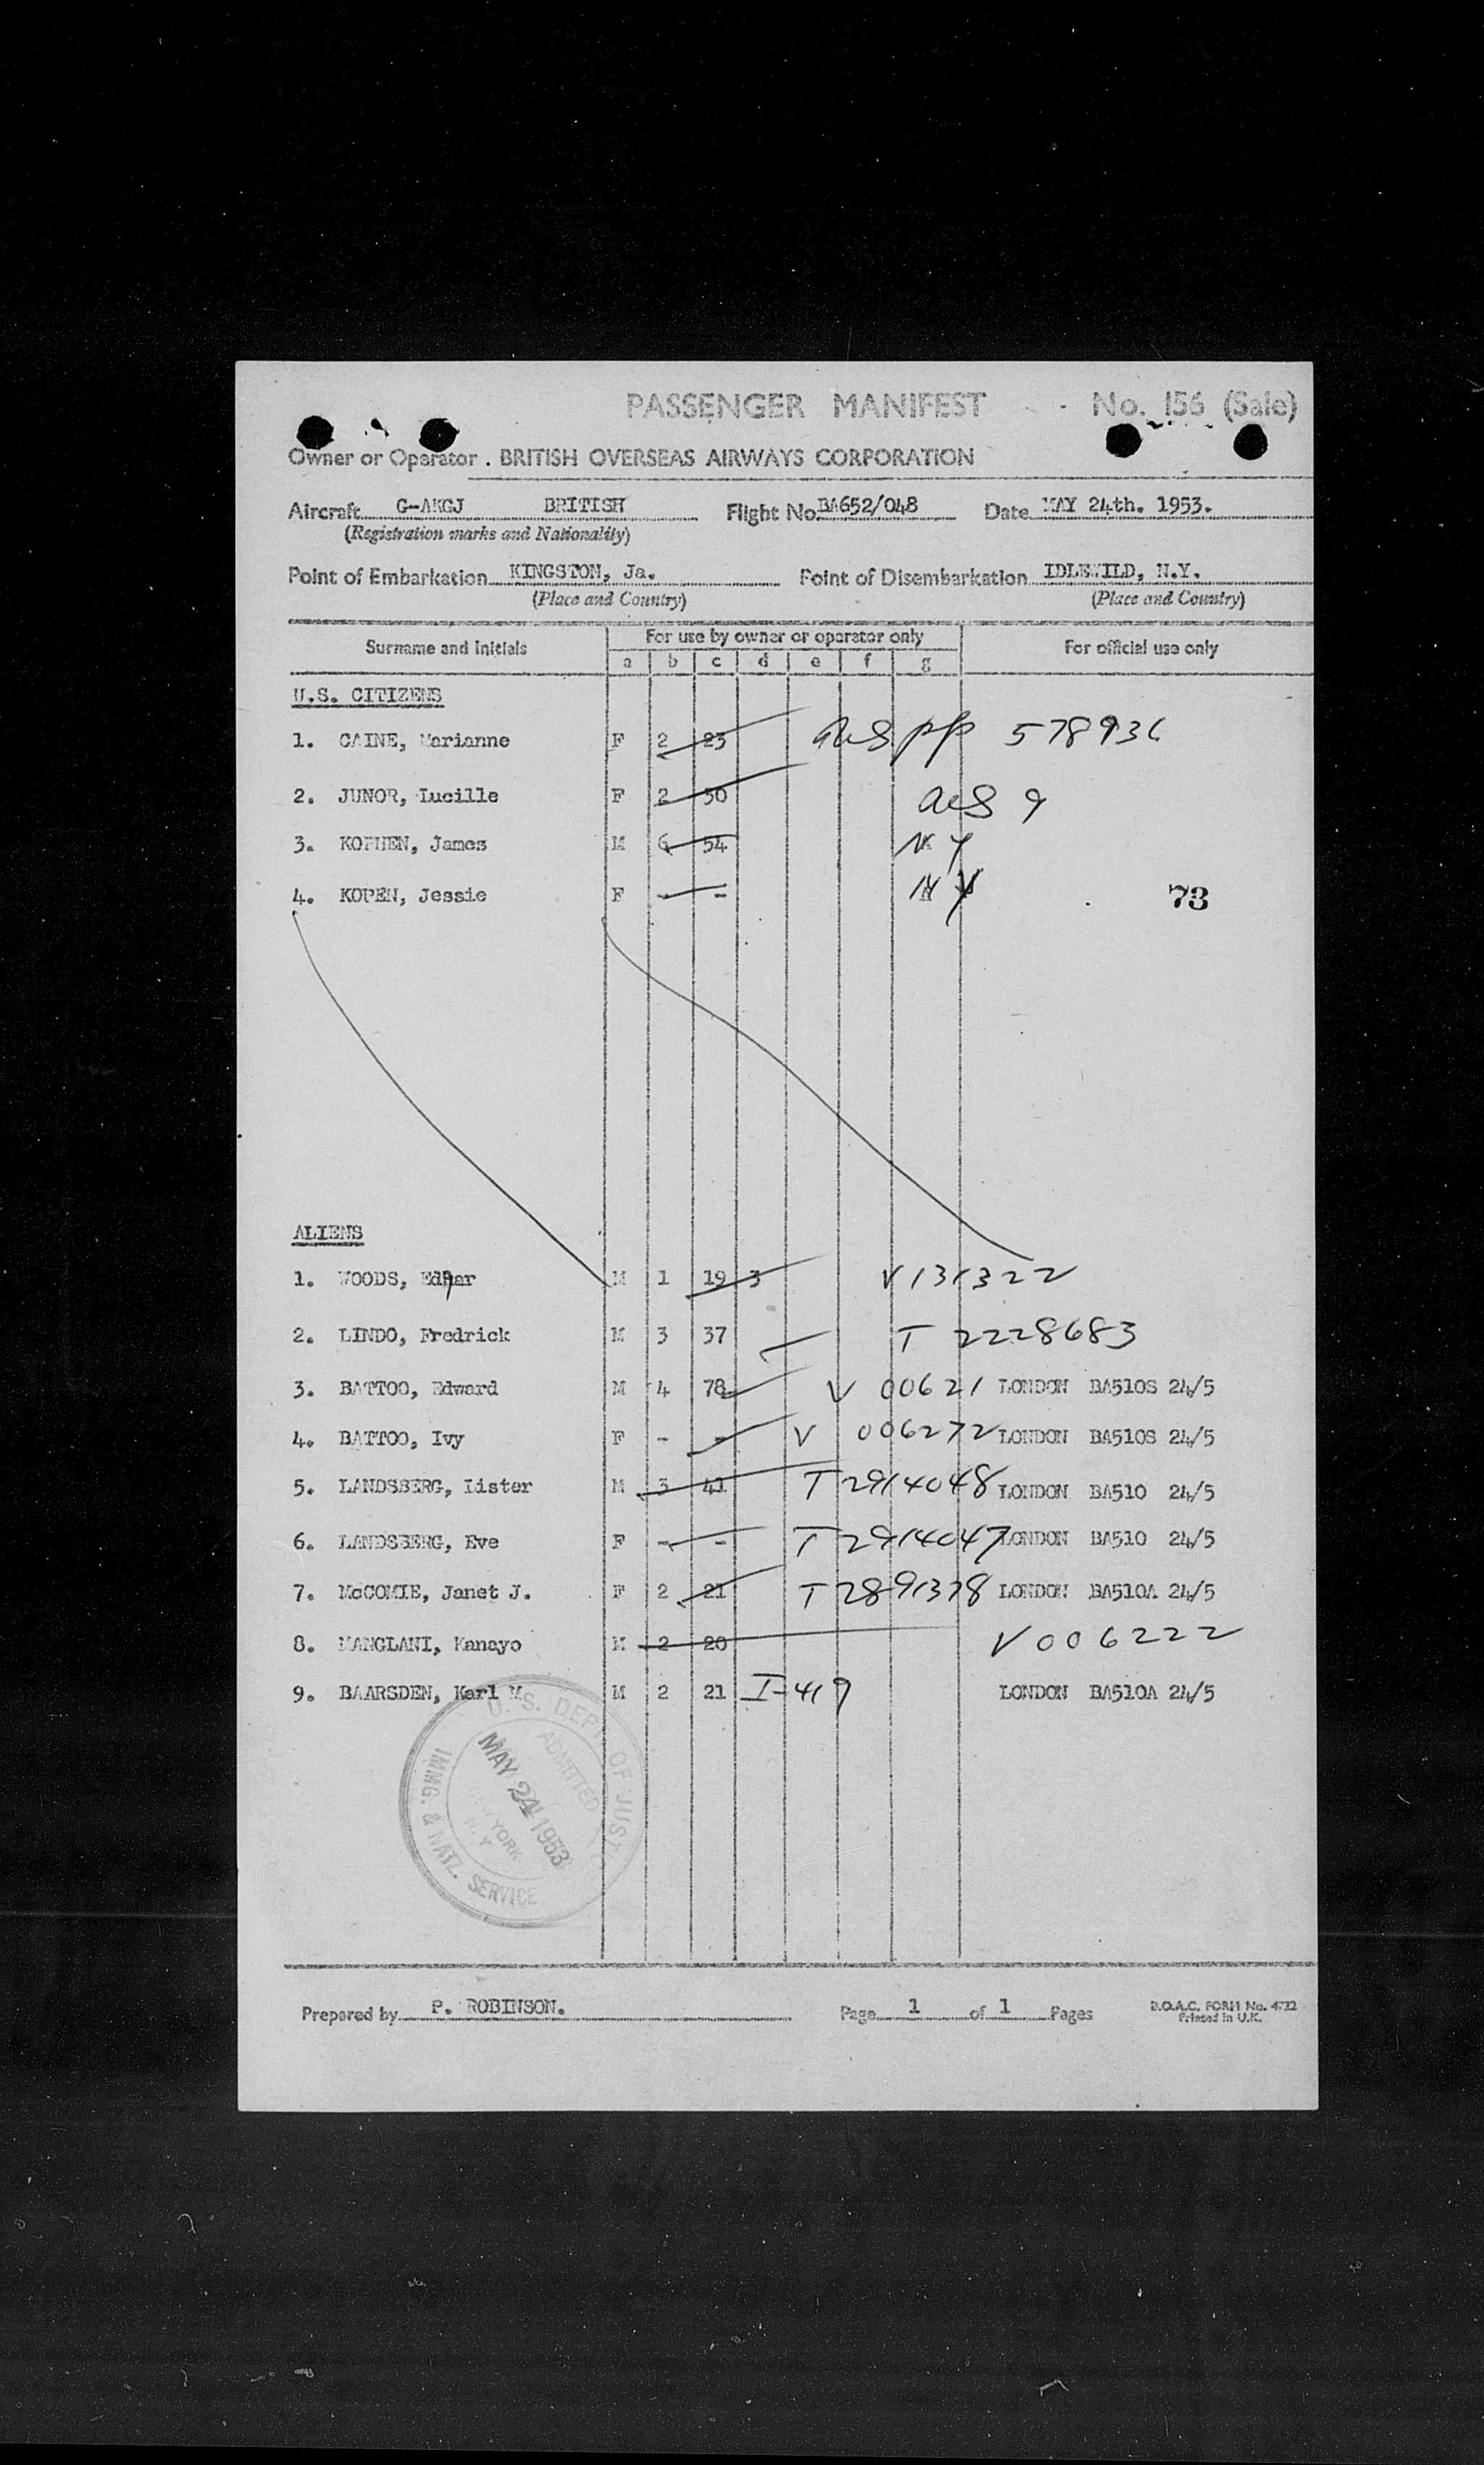 PASSENGER MANIFEST No. 156 (Sale)
Owner or Operator . BRITISH OVERSEAS AIRWAYS CORPORATION
Aircraft G-AKGJ BRITISH Flight No. BA652/048 Date MAY 24th. 1953.
(Registration marks and Nationality)
Point of Embarkation KINGSTON, Ja. Point of Disembarkation IDLEWILD, N.Y.
(Place and Country) (Place and Country)
Surname and Initials For use by owner or operator only For official use only
a b c d e f g
U.S. CITIZENS
1. CAINE, Marianne F 2 23 pp 578936
2. JUNOR, Lucille F 2 50 9
3. KOPHEN, James M 6 54 NY
4. KOPEN, Jessie F - - NY 73
ALIENS
1. WOODS, M 1 19 3 V131322
2. LINDO, Fredrick M 3 37 T 2228683
3. BATTOO, Edward M 4 78 V 00621 LONDON BA510S 24/5
4. BATTOO, Ivy F - - V 006272 LONDON BA510S 24/5
5. LANDSBERG, Lister M 3 41 T2914048 LONDON BA510 24/5
6. LANDSBERG, Eve F - - T2914047 LONDON BA510 24/5
7. McCOMIE, Janet J. F 2 21 T2891378 LONDON BA510A 24/5
8. MANGLANI, Kanayo M 2 20 V006222
9. BAARSDEN, Karl M M 2 21 I-419 LONDON BA510A 24/5
U.S. DEPT. OF JUST.
ADMITTED
MAY 24 1953
NEW YORK
N.Y.
IMMG. & NATL. SERVICE
Prepared by P. ROBINSON. Page 1 of 1 Pages B.O.A.C. FORM No. 4722
Printed in U.K.